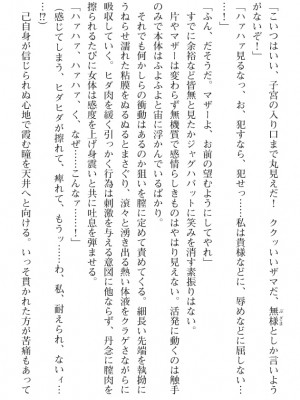 「こいつはいい、子宮の入り口まで丸見えだ！　ククッいいザマだ、無様としか言いよう
がないぞ！」
「ハァハァ見るなっ、お、犯すなら、犯せっ……私は貴様などに、辱めなどに屈しない…
…ハァハァ」
「ふん、だそうだ。マザーよ、お前の望むようにしてやれ」
すでに余裕など皆無と見たかジャグハバットに笑みを消す素振りはない。
片やマザーは変わらず無機質で感情らしきものはやはり見えない。活発に動くのは触手
のみで本体はふよふよと宙に浮かんでいるばかり。
それでも何かしらの衝動はあるのか狙いを膣に定めて責めてくる。細長い先端を執拗に
うねらせ濡れた粘膜をぬるぬるとまさぐり、滾々と湧き出る熱い体液をクラゲさながらに
吸い続けていく。ヒダ肉を緩く引っかく行為は刺激を与える意図に他ならず、丹念に膣肉を
擦られるたびに女体は感度を上げ身震いと共に吐息を弾ませる。
「ハァハァ、ハァハァ、く、なぜ……こんなァ…！」
（感じてしまう、ヒダヒダが擦れて、痺れて、もうッ……わ、私、耐えられ、ないィ…
…!?）
己自身が信じられぬ心地で霞む瞳を天井へと向ける。いっそ貫かれた方が苦痛もあって